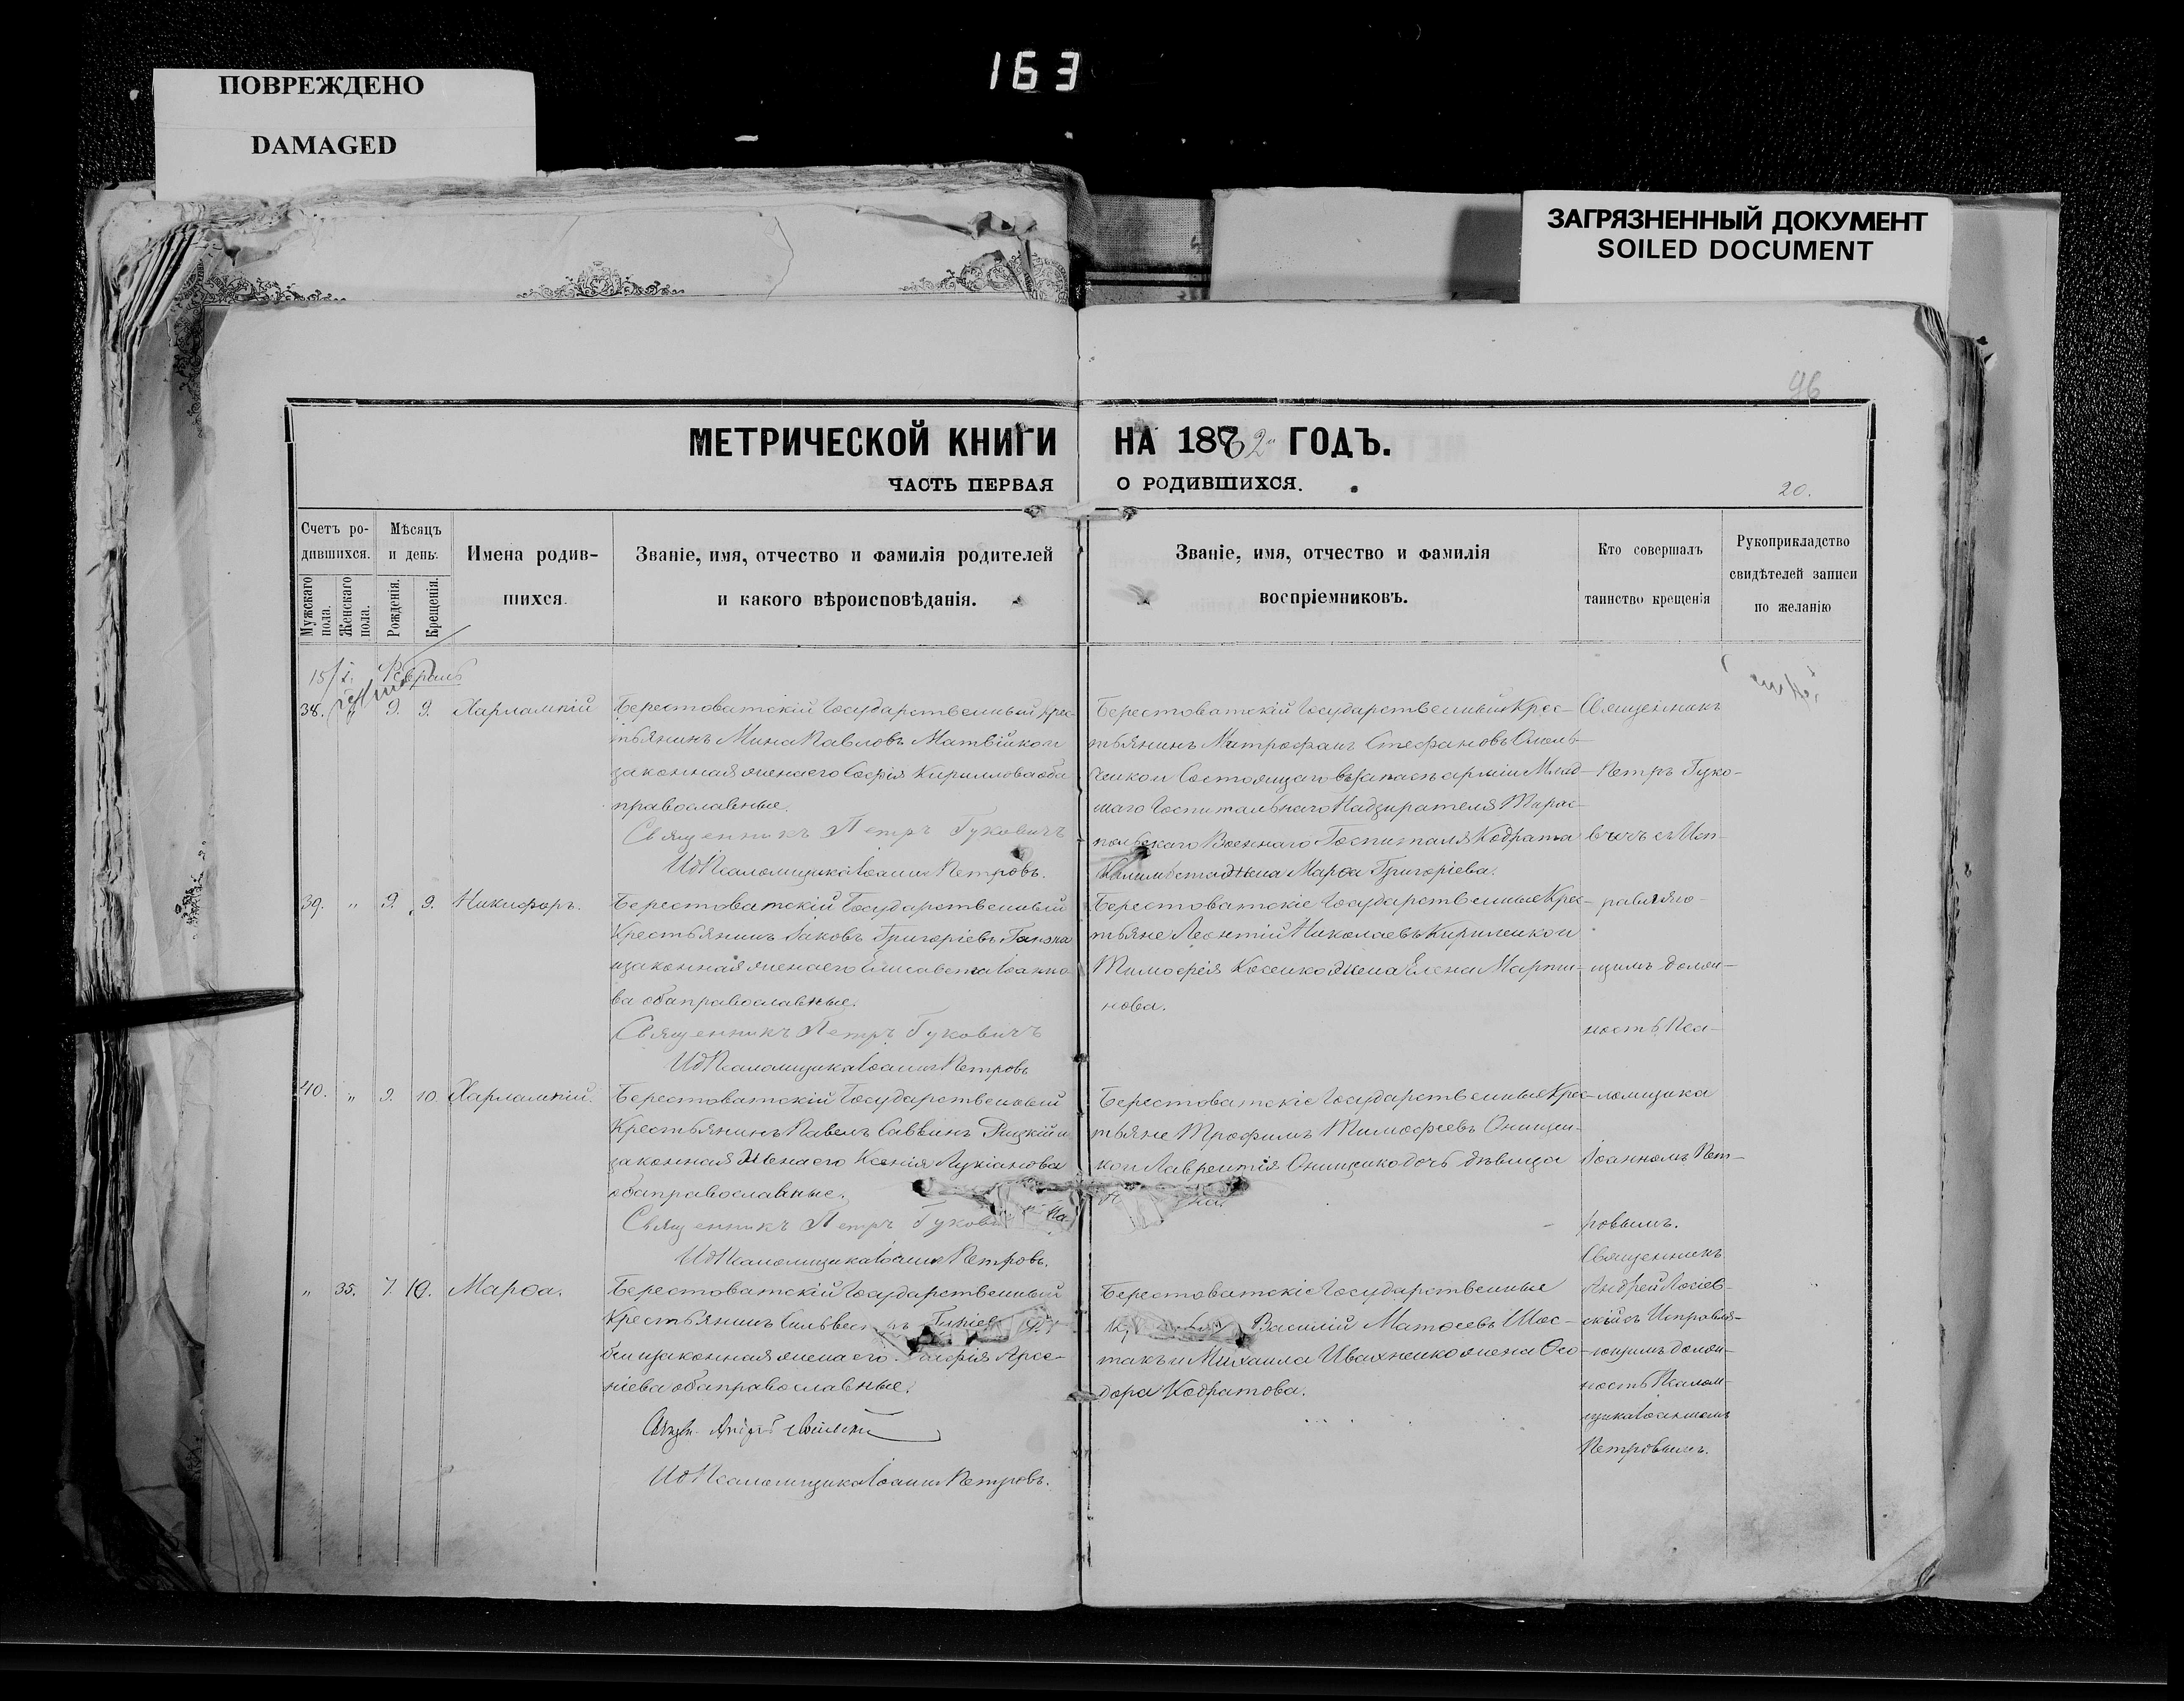 163
ПОВРЕЖДЕНО
DAMAGED
ЗАГРЯЗНЕННЫЙ ДОКУМЕНТ
SOILED DOCUMENT
96
МЕТРИЧЕСКОЙ КНИГИ НА 1882 ГОДЪ.
ЧАСТЬ ПЕРВАЯ О РОДИВШИХСЯ.
20.
Счетъ ро-
дившихся.
Мужскаго пола.
Женскаго пола.
Мѣсяцъ
и день.
Рожденія.
Крещенія.
Имена родив-
шихся.
Званіе, имя, отчество и фамилія родителей
и какого вѣроисповѣданія.
Званіе, имя, отчество и фамилія
воспріемниковъ.
Кто совершалъ
таинство крещенія
Рукоприкладство
свидѣтелей записи
по желанію
Февраль
38. " 9. 9. Харлампій
Берестоватскій Государственный Крес-
тьянинъ Мина Павловъ Матвійко и
законная жена его Софія Кириллова оба
православные.
Священникъ Петръ Гуковичъ
Ид Псаломщика Іоаннъ Петровъ.
Берестоватскій Государственный Крес-
тьянинъ Митрофанъ Стефановъ
Состоящаго въ запасѣ арміи Млад-
шаго Госпитальнаго Надзирателя Тирас-
польскаго Военнаго Госпиталя Кодрата
жена Марѳа Григоріева.
39. " 9. 9. Никифоръ.
Берестоватскій Государственный
Крестьянинъ Іаковъ Григоріевъ Ганжа
и законная жена его Елисавета Іоанно-
ва оба православные.
Священникъ Петръ Гуковичъ
Ид Псаломщика Іоаннъ Петровъ
Берестоватскіе Государственные Крес-
тьяне Леонтій Николаевъ Кириленко и
Тимофея Косенко жена Елена Марти-
нова.
40. " 9. 10. Харлампій.
Берестоватскій Государственный
Крестьянинъ Павелъ Саввинъ Рицкій и
законная жена его Ксенія Лукіанова
оба православные.
Священникъ Петръ Гукови
Ид Псаломщика Іоаннъ Петровъ.
Берестоватскіе Государственные Крес-
тьяне Трофимъ Тимофеевъ Онищен-
ко и Лаврентія Онищенко дочь дѣвица
Священникъ
Петръ Гуко-
вичъ съ Исп-
равляю-
щимъ долж-
ность Пса-
ломщика
Іоанномъ Пет-
ровымъ.
" 35. 7. 10. Марѳа.
Берестоватскій Государственный
Крестьянинъ Сильвес
и законная жена его Арсе-
ніева оба православные.
Ид Псаломщика Іоаннъ Петровъ.
Берестоватскіе Государственные
Василій Матѳеевъ Шос-
такъ и Михаила Ивахненко жена Ѳео-
дора Кодратова.
Священникъ
Андрей
скій съ Исправля-
ющимъ долж-
ность Псалом-
щика Іоанномъ
Петровымъ.